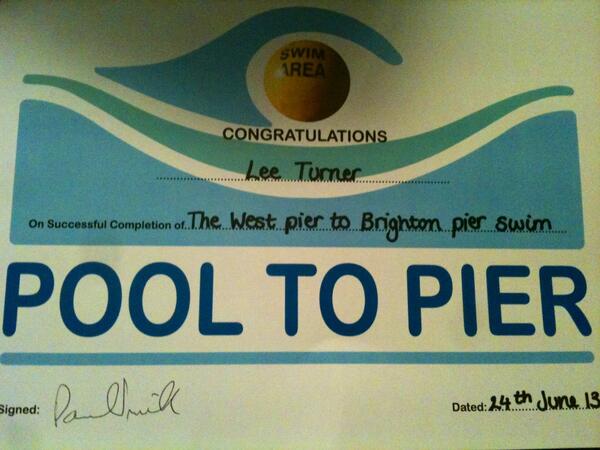 SWIM
AREA
CONGRATULATIONS
Lee Turner
On Successful Completion of The West pier to Brighton pier swim
POOL TO PIER
Signed:
Dated: 24th June 13